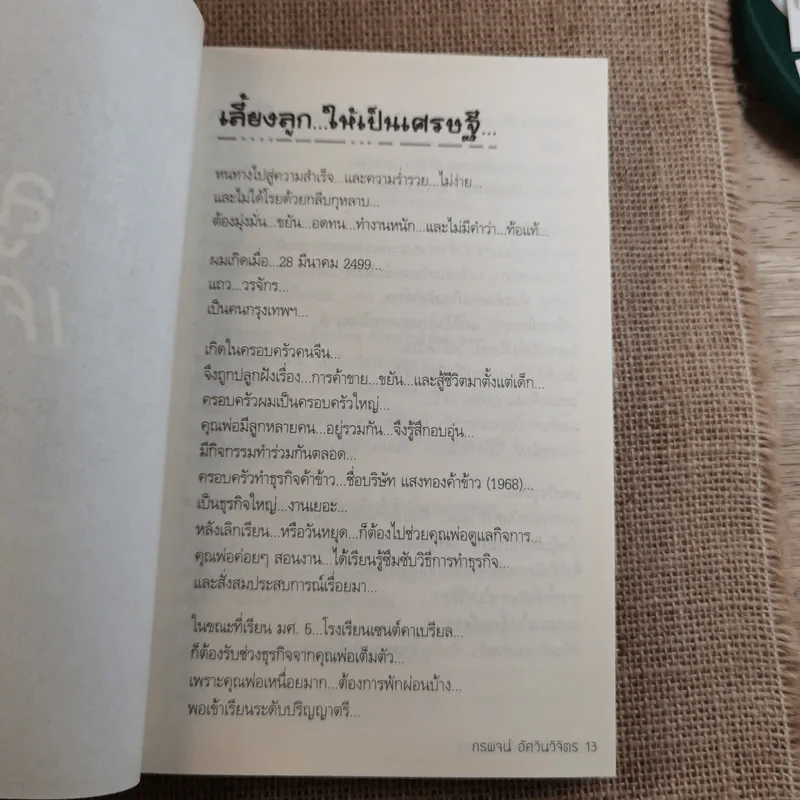 เลี้ยงลูก...ให้เป็นเศรษฐี...
หนทางไปสู่ความสำเร็จ...และความร่ำรวย...ไม่ง่าย...
และไม่ได้โรยด้วยกลีบกุหลาบ...
ต้องมุ่งมั่น...ขยัน...อดทน...ทำงานหนัก...และไม่มีคำว่า...ท้อแท้...
ผมเกิดเมื่อ...28 มีนาคม 2499...
แถว...วรจักร...
เป็นคนกรุงเทพฯ...
เกิดในครอบครัวคนจีน...
จึงถูกปลูกฝังเรื่อง...การค้าขาย...ขยัน...และสู้ชีวิตมาตั้งแต่เด็ก...
ครอบครัวผมเป็นครอบครัวใหญ่...
คุณพ่อมีลูกหลายคน...อยู่รวมกัน...จึงรู้สึกอบอุ่น...
มีกิจกรรมทำร่วมกันตลอด...
ครอบครัวทำธุรกิจค้าข้าว...ชื่อบริษัท แสงทองค้าข้าว (1968)...
เป็นธุรกิจใหญ่...งานเยอะ...
หลังเลิกเรียน...หรือวันหยุด...ก็ต้องไปช่วยคุณพ่อดูแลกิจการ...
คุณพ่อค่อยๆ สอนงาน...ได้เรียนรู้ซึมซับวิธีการทำธุรกิจ...
และสั่งสมประสบการณ์เรื่อยมา...
ในขณะที่เรียน มศ. 5...โรงเรียนเซนต์คาเบรียล...
ก็ต้องรับช่วงธุรกิจจากคุณพ่อเต็มตัว...
เพราะคุณพ่อเหนื่อยมาก...ต้องการพักผ่อนบ้าง...
พอเข้าเรียนระดับปริญญาตรี...
กรพจน์ อัศวินวิจิตร 13